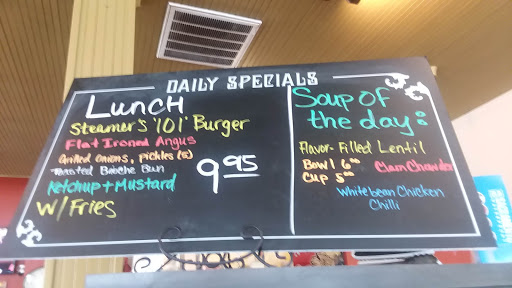 DAILY SPECIALS
LUNCH
Steamer's '101' Burger
Flat Ironed Angus
Grilled onions, pickles (5)
Toasted Brioche Bun
Ketchup + Mustard
W/ Fries
9.95
Soup of
the day:
Flavor-Filled Lentil
Bowl 6.00
Cup 5.00
Clam Chowder
White bean Chicken
Chilli